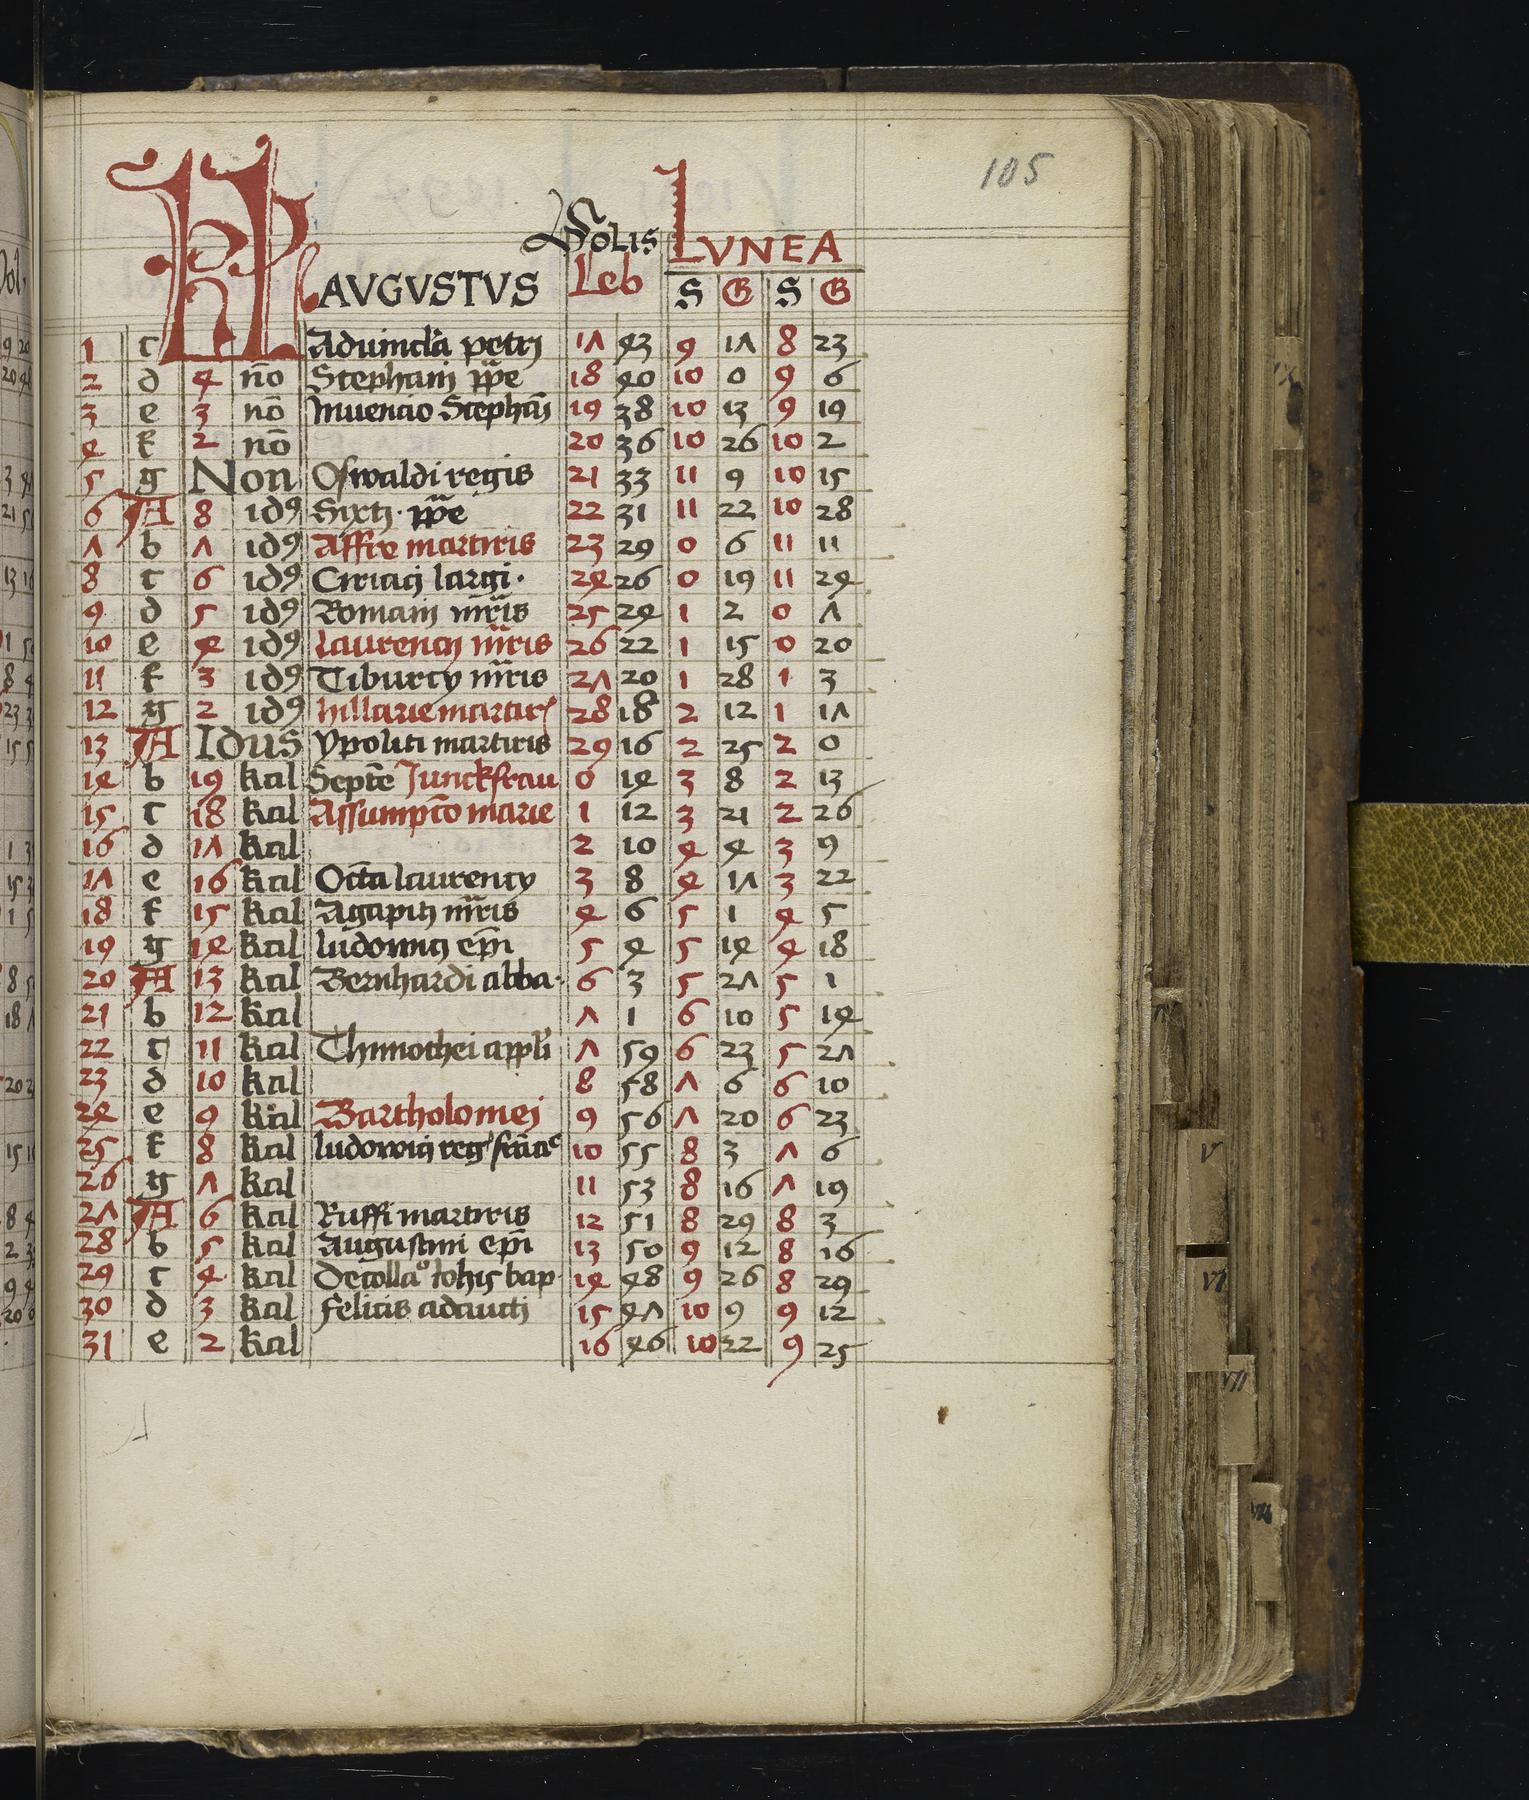 105
Solis LVNEA
KL AVGVSTVS Leb S G S G
1 c Aduincla petrj 17 43 9 17 8 23
2 d 4 no Stephanj ppe 18 40 10 0 9 6
3 e 3 no Inuencio Stephanj 19 38 10 13 9 19
4 f 2 no 20 36 10 26 10 2
5 g Non Oswaldi regis 21 33 11 9 10 15
6 A 8 id9 Sixtj ppe 22 31 11 22 10 28
7 b 7 id9 Affre martiris 23 29 0 6 11 11
8 c 6 id9 Ciriacj largi 24 26 0 19 11 24
9 d 5 id9 Romanj mris 25 24 1 2 0 7
10 e 4 id9 laurencij mris 26 22 1 15 0 20
11 f 3 id9 Tiburcy mris 27 20 1 28 1 3
12 g 2 id9 hillarie martir 28 18 2 12 1 17
13 A Idus ypoliti martiris 29 16 2 25 2 0
14 b 19 kal Septe Junckfrau 0 14 3 8 2 13
15 c 18 kal Assumpto marie 1 12 3 21 2 26
16 d 17 kal 2 10 4 4 3 9
17 e 16 kal Octa laurency 3 8 4 17 3 22
18 f 15 kal Agapitj mris 4 6 5 1 4 5
19 g 14 kal ludowicj epi 5 4 5 14 4 18
20 A 13 kal Bernhardi abba 6 3 5 27 5 1
21 b 12 kal 7 1 6 10 5 14
22 c 11 kal Thimothei appli 7 59 6 23 5 27
23 d 10 kal 8 58 7 6 6 10
24 e 9 kal Bartholomej 9 56 7 20 6 23
25 f 8 kal ludowicj reg franc 10 55 8 3 7 6
26 g 7 kal 11 53 8 16 7 19
27 A 6 kal Ruffi martiris 12 51 8 29 8 3
28 b 5 kal Augustini epi 13 50 9 12 8 16
29 c 4 kal Decolla Iohis bap 14 48 9 26 8 29
30 d 3 kal felicis adauctj 15 47 10 9 9 12
31 e 2 kal 16 46 10 22 9 25
V
VI
VII